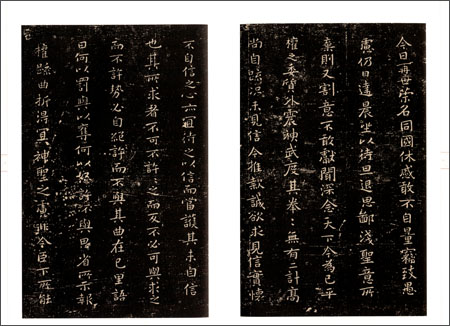 今日再世榮名同國休慼敢不自量竊致愚
慮仍日達晨坐以待旦退思鄙淺聖意所
棄則又割意不敢獻聞深念天下今為已平
權之委質外震神武度其拳々無有二計高
尚自疏況未見信今推款誠欲求見信實懷
不自信之心亦宜待之以信而當護其未自信
也其所求者不可不許許之而反不必可與求之
而不許勢必自絕許而不與其曲在己里語
曰何以罰與以奪何以怒許不與思省所示報
權疏曲折得宜神聖之慮非今臣下所能